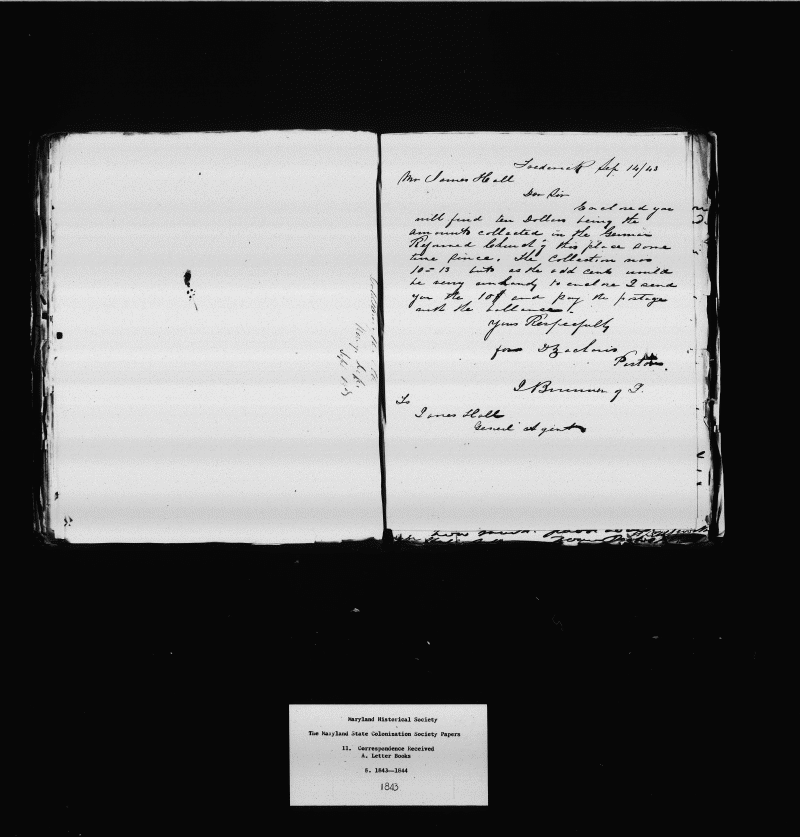 Frederick Sep 14/43
Mr James Hall
Dear Sir
Enclosed you
will find ten Dollars being the
amounts collected in the German
Reformed Church of this place some
time since. The Collection was
10=13 but as the odd cents would
be very unhandy to enclose I send
you the 10$ and pay the postage
with the ballance.
Yours Respectfully
for D Zacharias
Pastor.
J Brunner of J.
To
James Hall
Genl Agent
Maryland Historical Society
The Maryland State Colonization Society Papers
11. Correspondence Received
A. Letter Books
8. 1843--1844
1843